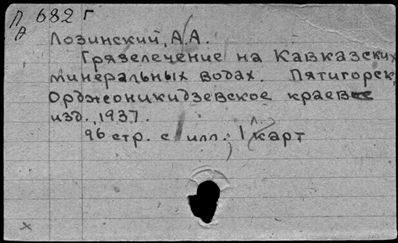 П 682 г
А
Лозинский, А.А.
Грязелечение на Кавказских
минеральных водах. Пятигорск,
Орджоникидзевское краевое
изд., 1937.
96 стр. с илл.; 1 л. карт